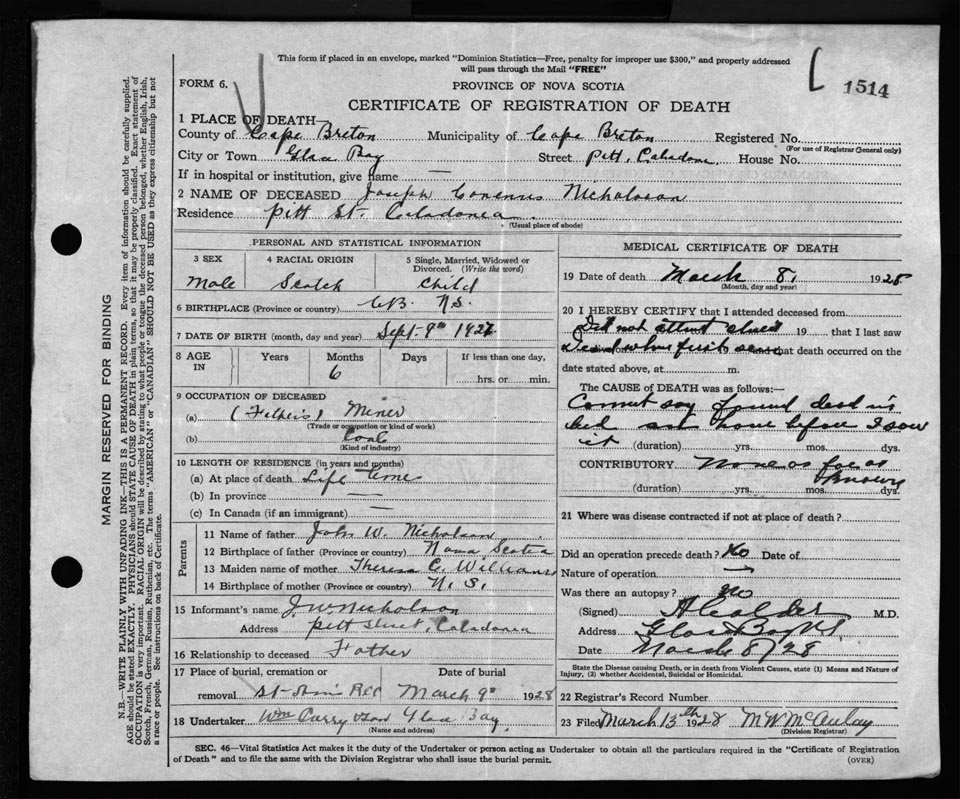 This form if placed in an envelope, marked "Dominion Statistics—Free, penalty for improper use $300," and properly addressed
will pass through the Mail "FREE"
1514
FORM 6.
PROVINCE OF NOVA SCOTIA
CERTIFICATE OF REGISTRATION OF DEATH
1 PLACE OF DEATH—
County of Cape Breton Municipality of Cape Breton Registered No.
(For use of Registrar General only)
City or Town Glace Bay Street Pitt, Caladonia House No.
If in hospital or institution, give name —
2 NAME OF DECEASED Joseph Nicholson
Residence Pitt St. Caladonia
(Usual place of abode)
PERSONAL AND STATISTICAL INFORMATION
3 SEX 4 RACIAL ORIGIN 5 Single, Married, Widowed or
Divorced. (Write the word)
Male Scotch Child
6 BIRTHPLACE (Province or county) C.B. N.S.
7 DATE OF BIRTH (month, day and year) Sept. 9th 1927
8 AGE IN Years Months Days If less than one day,
6
hrs. or min.
9 OCCUPATION OF DECEASED
(a) (Father's) Miner
(Trade or occupation or kind of work)
(b) Coal
(Kind of industry)
10 LENGTH OF RESIDENCE (in years and months)
(a) At place of death Life time
(b) In province —
(c) In Canada (if an immigrant) —
Parents
11 Name of father John W. Nicholson
12 Birthplace of father (Province or country) Nova Scotia
13 Maiden name of mother Theresa C. Williams
14 Birthplace of mother (Province or country) N. S.
15 Informant's name J. W. Nicholson
Address Pitt Street, Caladonia
16 Relationship to deceased Father
17 Place of burial, cremation or Date of burial
removal March 9th 1928
18 Undertaker Wm Curry & son Glace Bay
(Name and address)
MEDICAL CERTIFICATE OF DEATH
19 Date of death March 8, 1928
(Month, day and year)
20 I HEREBY CERTIFY that I attended deceased from
Did not attend 19 that I last saw
Dead when first seen 19 that death occurred on the
date stated above, at m.
The CAUSE OF DEATH was as follows:—
Cannot say found dead in
bed at home before I saw
it (duration) yrs. mos. dys.
CONTRIBUTORY None as far as
known
(duration) yrs. mos. dys.
21 Where was disease contracted if not at place of death?
Did an operation precede death? No Date of
Nature of operation —
Was there an autopsy? no
(Signed) A Calder M.D.
Address Glace Bay N.S.
Date March 8/28
State the Disease causing Death, or in death from Violent Causes, state (1) Means and Nature of
Injury, (2) whether Accidental, Suicidal or Homicidal.
22 Registrar's Record Number
23 Filed March 13th 1928 M W McAulay
(Division Registrar)
SEC. 46—Vital Statistics Act makes it the duty of the Undertaker or person acting as Undertaker to obtain all the particulars required in the "Certificate of Registration
of Death" and to file the same with the Division Registrar who shall issue the burial permit.
(OVER)
MARGIN RESERVED FOR BINDING
N.B.—WRITE PLAINLY WITH UNFADING INK—THIS IS A PERMANENT RECORD. Every item of information should be carefully supplied.
AGE should be stated EXACTLY. PHYSICIANS should STATE CAUSE OF DEATH in plain terms, so that it may be properly classified. Exact statement of
OCCUPATION is very important. RACIAL ORIGIN will be described by stating to what people or tongue the deceased person belonged, whether English, Irish,
Scotch, French, German, Russian, Ruthenian, etc. The terms "AMERICAN" or "CANADIAN" SHOULD NOT BE USED as they express citizenship but not
a race or people. See instructions on back of Certificate.